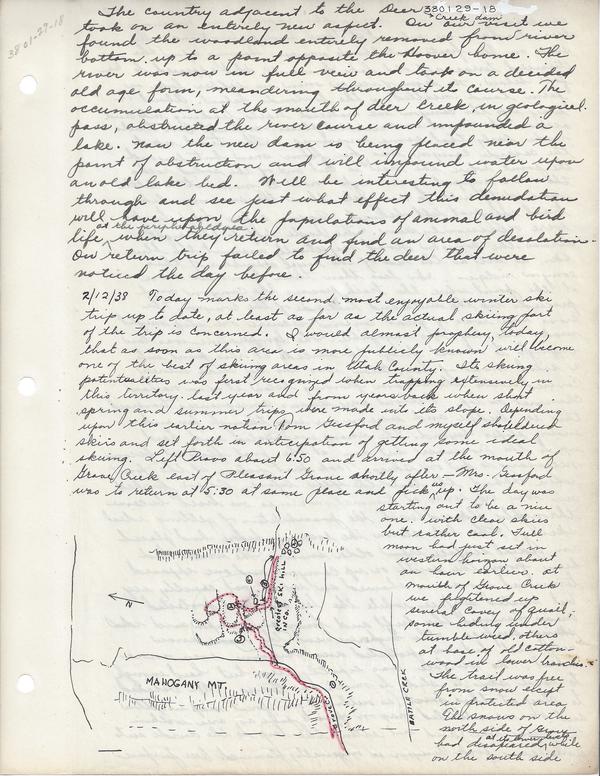 380129-18
3801-29-18
The country adjacent to the Deer Creek dam
took on an entirely new aspect. On our visit we
found the woodland entirely removed from river
bottom up to a point opposite the Hoover home. The
river was now in full view and took on a decided
old age form, meandering throughout its course. The
accumulation at the mouth of deer Creek, in geological
pass, obstructed the river course and impounded a
lake. Now the new dam is being placed near the
point of obstruction and will impound water upon
an old lake bed. Will be interesting to follow
through and see just what effect this denudation
will have upon the populations of animal and bird
life, at the periphery edges when they return and find an area of desolation.
On return trip failed to find the deer that were
noticed the day before.
2/12/38 Today marks the second most enjoyable winter ski
trip up to date, at least as far as the actual skiing part
of the trip is concerned. I would almost prophesy, today,
that as soon as this area is more publicly known will become
one of the best of skiing areas in Utah County. Its skiing
potentialities was first recognized when trapping extensively in
this territory last year and from years back when short
spring and summer trips were made into its slope. Depending
upon this earlier notion Dom Gessford and myself shouldered
skiis and set forth in anticipation of getting some ideal
skiing. Left Provo about 6:50 and arrived at the mouth of
Grove Creek east of Pleasant Grove shortly after - Mrs. Gessford
was to return at 5:30 at same place and pick us up. The day was
starting out to be a nice
one. with clear skies
but rather cool. Full
moon had just set in
western horizon about
an hour earlier. at
mouth of Grove Creek
we frightened up
several covey of quail,
some hiding under
tumble weed, others
at base of old cotton-
wood in lower branches.
The trail was free
from snow except
in protected area
The snows on the
north side of Grove
had disapeared, at its lower levels while
on the south side
N
GREATEST SKI HILL
IN CO.
MAHOGANY MT.
GROVE CR.
BATTLE CREEK